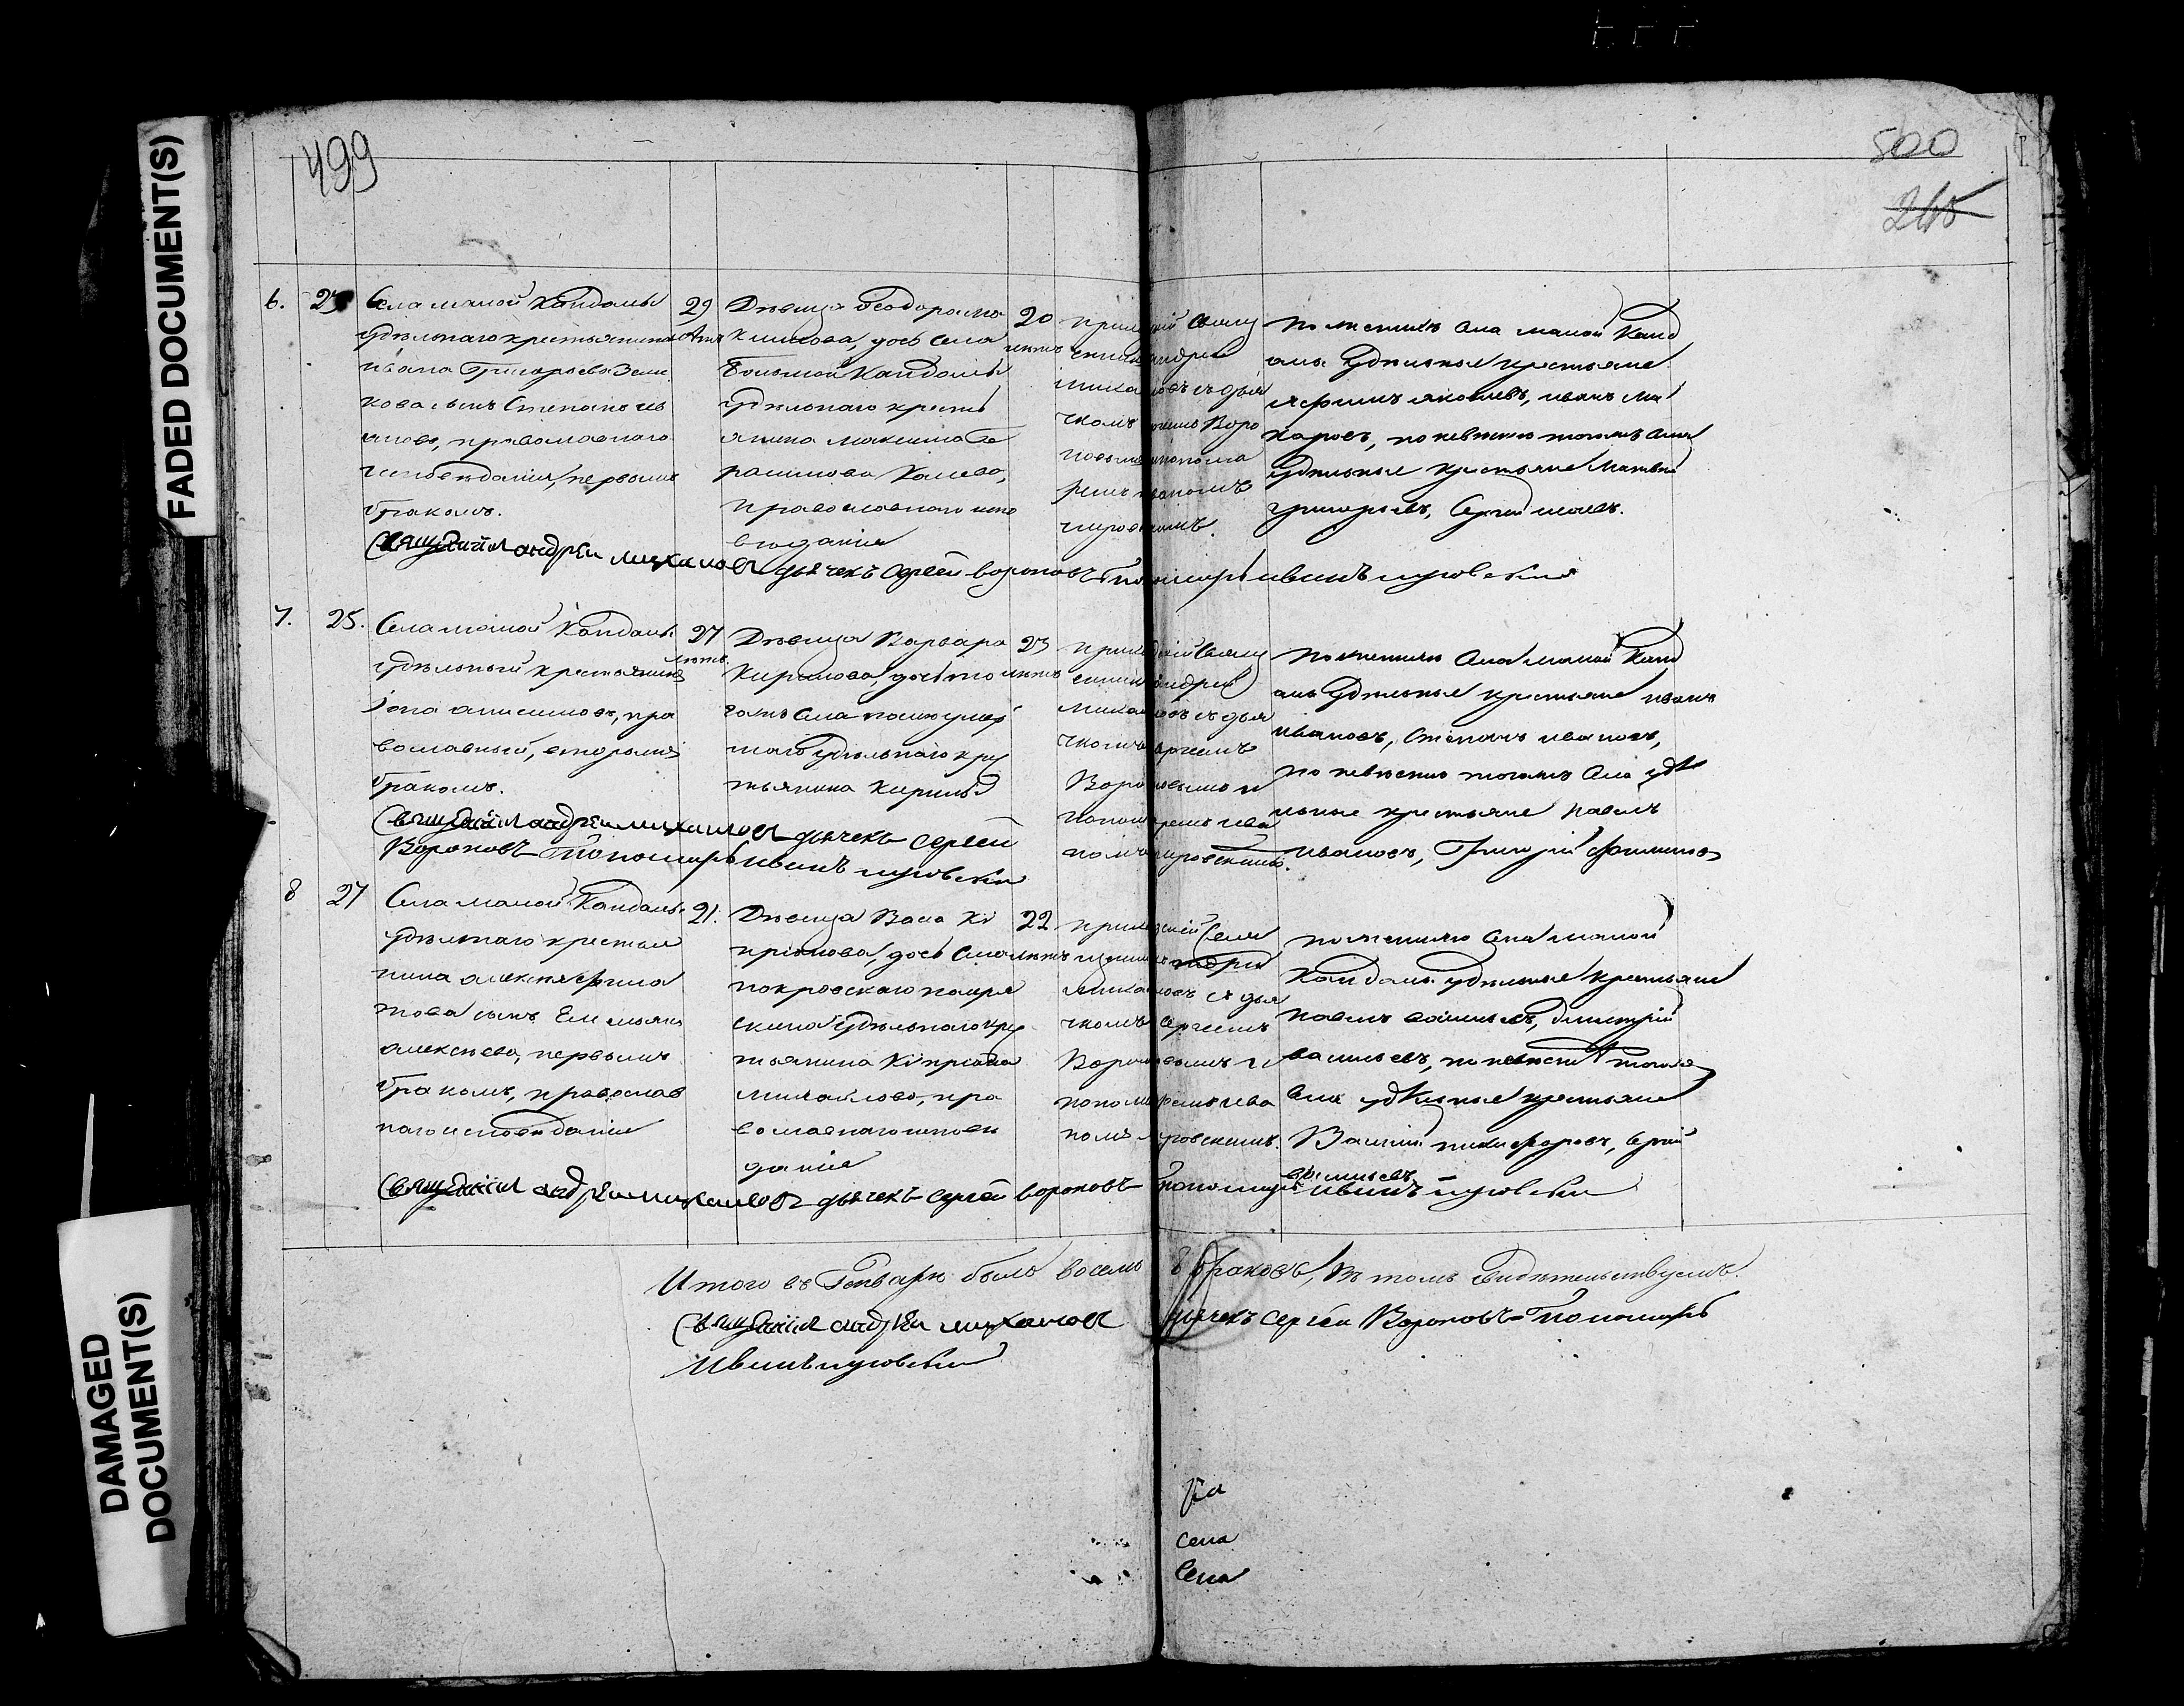 FADED DOCUMENT(S)
DAMAGED DOCUMENT(S)
499
500
6.
Села малой Кандалы
удѣльнаго крестьянина
ивана Григорьева
сынъ Степанъ
православнаго
исповѣданія, первымъ
бракомъ.
29
лѣтъ
Дѣвица Ѳеодора Ма
ксимова, дочь села
Большой Кандалы
удѣльнаго кресть
янина максима Ге
расимова
православнаго испо
вѣданія
20
лѣтъ
приходскій Свящ
енникъ андрей
михайловъ съ дья
чкомъ Воро
новымъ и понома
ремъ иваномъ
по женихѣ села малой Канд
алы Удѣльные крестьяне
ефимъ яковлевъ, иванъ Ма
каровъ, по невѣстѣ тогожъ села
Удѣльные крестьяне Матвей
григорьевъ, Сергей
священникъ андрей михайловъ дьячекъ сергей вороновъ пономарь иванъ
7.
25.
Села малой Кандалы
удѣльный крестьянинъ
іона анисимовъ, пра
вославный, вторымъ
бракомъ.
27
лѣтъ
Дѣвица Варвара
Кирилова, дочь то
гожъ села умер
шаго удѣльнаго кре
стьянина Кирилы
23
лѣтъ
приходскій Свящ
енникъ андрей
михайловъ съ дья
чкомъ сергеемъ
Вороновымъ и
пономаремъ ива
номъ
по женихѣ Села малой Канд
алы Удѣльные крестьяне иванъ
ивановъ, Степанъ ивановъ,
по невѣстѣ тогожъ села удѣ
льные крестьяне павелъ
ивановъ, Григорій филиповъ
священникъ андрей михайловъ дьячекъ сергей
Вороновъ пономарь иванъ
8
27
Села малой Кандалы
удѣльнаго крестья
нина алексея фила
това сынъ Емельянъ
алексеевъ, первымъ
бракомъ, православ
наго исповѣданія
21.
Дѣвица Васса Кі
пріянова, дочь села
покровскаго
удѣльнаго кре
стьянина Кіпріяна
михайлова, пра
вославнаго исповѣ
данія
22
лѣтъ
приходскій Свящ
енникъ андрей
михайловъ съ дья
чкомъ Сергеемъ
Вороновымъ и
пономаремъ ива
номъ
по женихѣ села малой
Кандалы удѣльные крестьяне
павелъ васильевъ, димитрій
васильевъ, по невѣстѣ тогожъ
села удѣльные крестьяне
Василій никифоровъ, сергей
васильевъ
священникъ андрей михайловъ дьячекъ сергей вороновъ пономарь иванъ
Итого въ Генварѣ было восемь 8 браковъ, въ томъ свидѣтельствуемъ.
священникъ андрей михайловъ дьячекъ сергей Вороновъ пономарь
иванъ
села
села